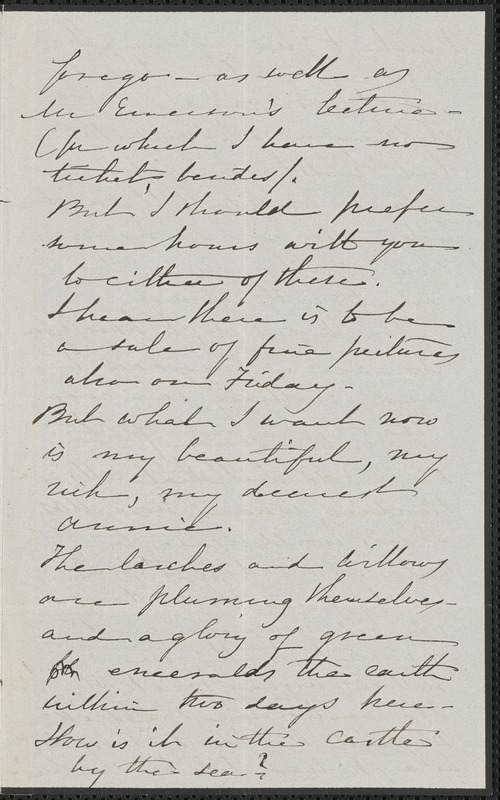 forego – as well as
Mr Emerson's lecture –
(for which I have no
ticket, besides).
But I should prefer
some hours with you
to either of these.
I hear there is to be
a sale of fine pictures
also on Friday –
But what I want now
is my beautiful, my
rich, my dearest
Annie.
The larches and willows
are pluming themselves –
and a glory of green
emeralds the earth
within two days here –
How is it in the castle
by the sea?